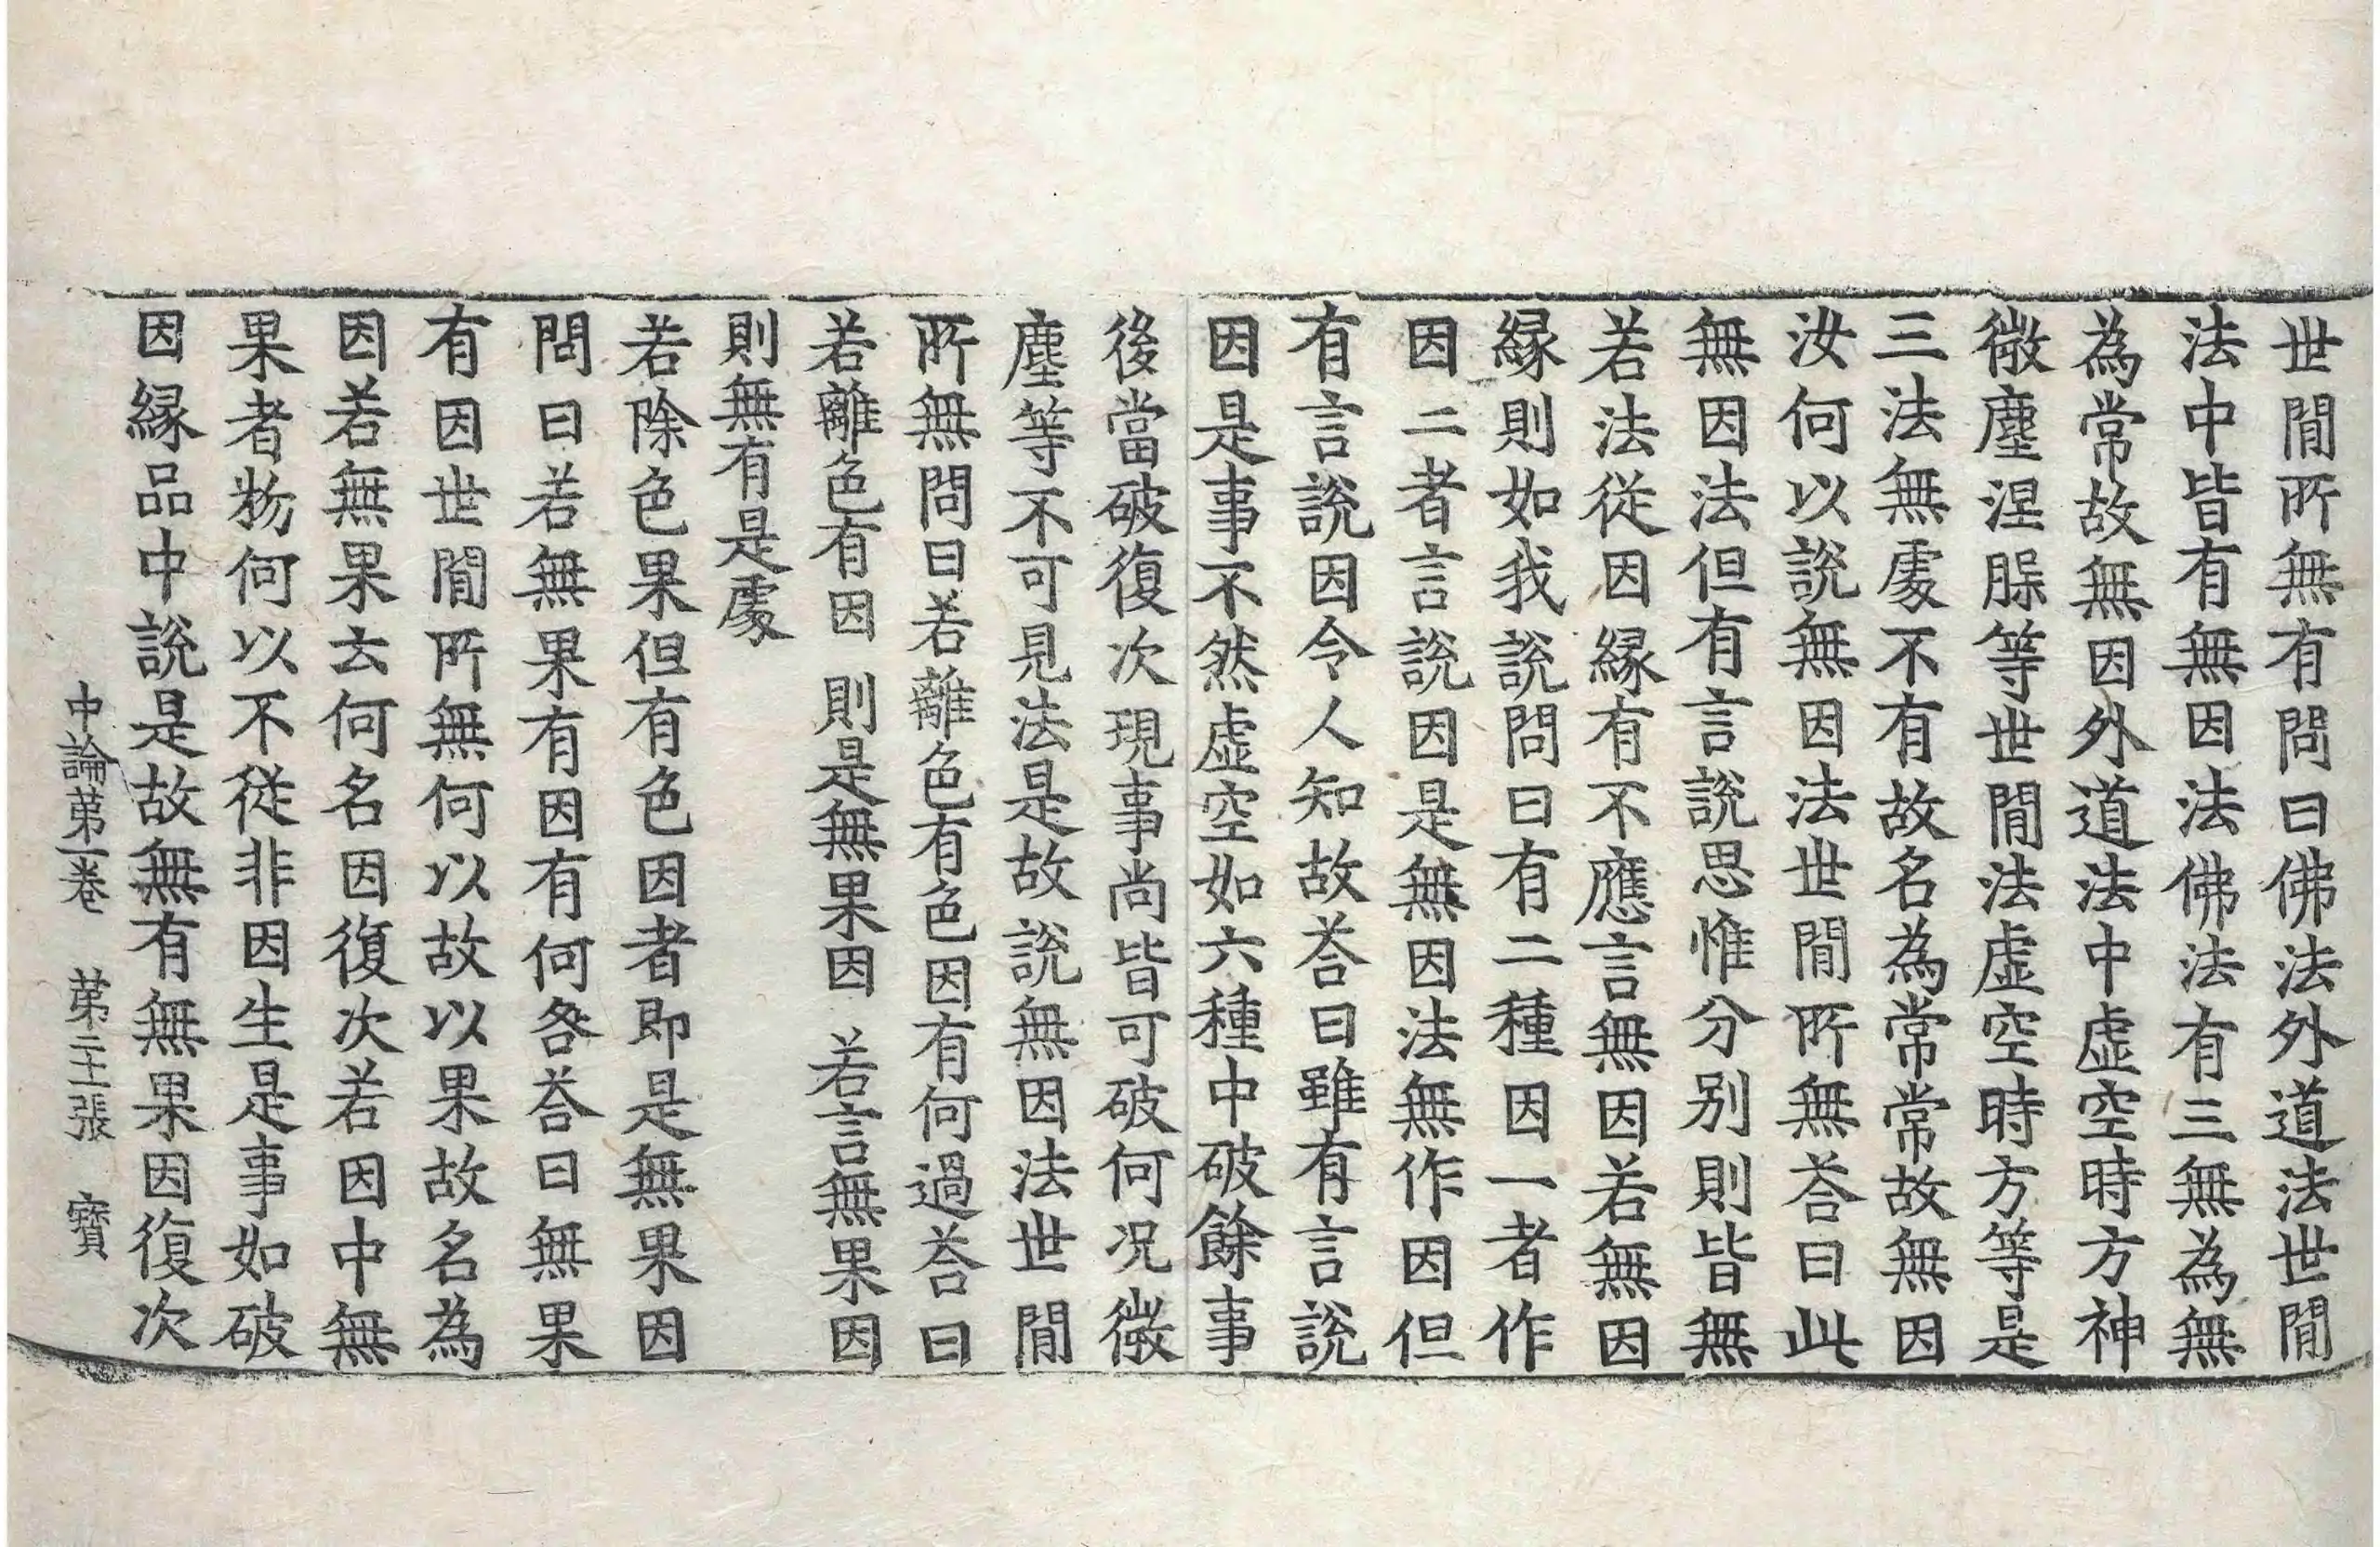 世閒所無有問曰佛法外道法世閒
法中皆有無因法佛法有三無為無
為常故無因外道法中虛空時方神
微塵涅脲等世閒法虛空時方等是
三法無處不有故名為常常故無因
汝何以說無因法世閒所無荅曰此
無因法但有言說思惟分別則皆無
若法從因緣有不應言無因若無因
緣則如我說問曰有二種因一者作
因二者言說因是無因法無作因但
有言說因令人知故荅曰雖有言說
因是事不然虛空如六種中破餘事
後當破復次現事尚皆可破何況微
塵等不可見法是故說無因法世閒
所無問曰若離色有色因有何過荅曰
若離色有因 則是無果因 若言無果因
則無有是處
若除色果但有色因者即是無果因
問曰若無果有因有何咎荅曰無果
有因世閒所無何以故以果故名為
因若無果云何名因復次若因中無
果者物何以不從非因生是事如破
因緣品中說是故無有無果因復次
中論第一卷 第二十張 寶